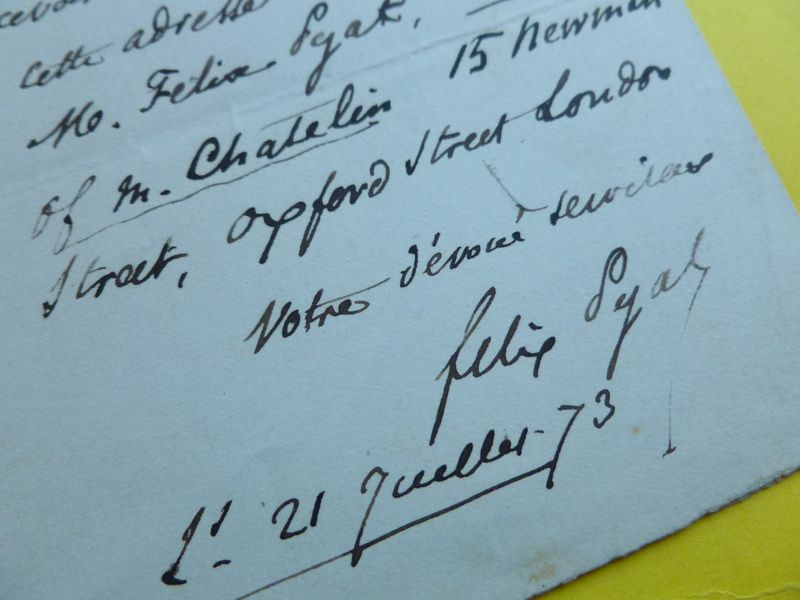 cevoir
cette adresse
M. Felix Pyat,
of M. Chatelin 15 Newman
Street, Oxford Street London
Votre dévoué serviteur
Felix Pyat
21 Juillet 73